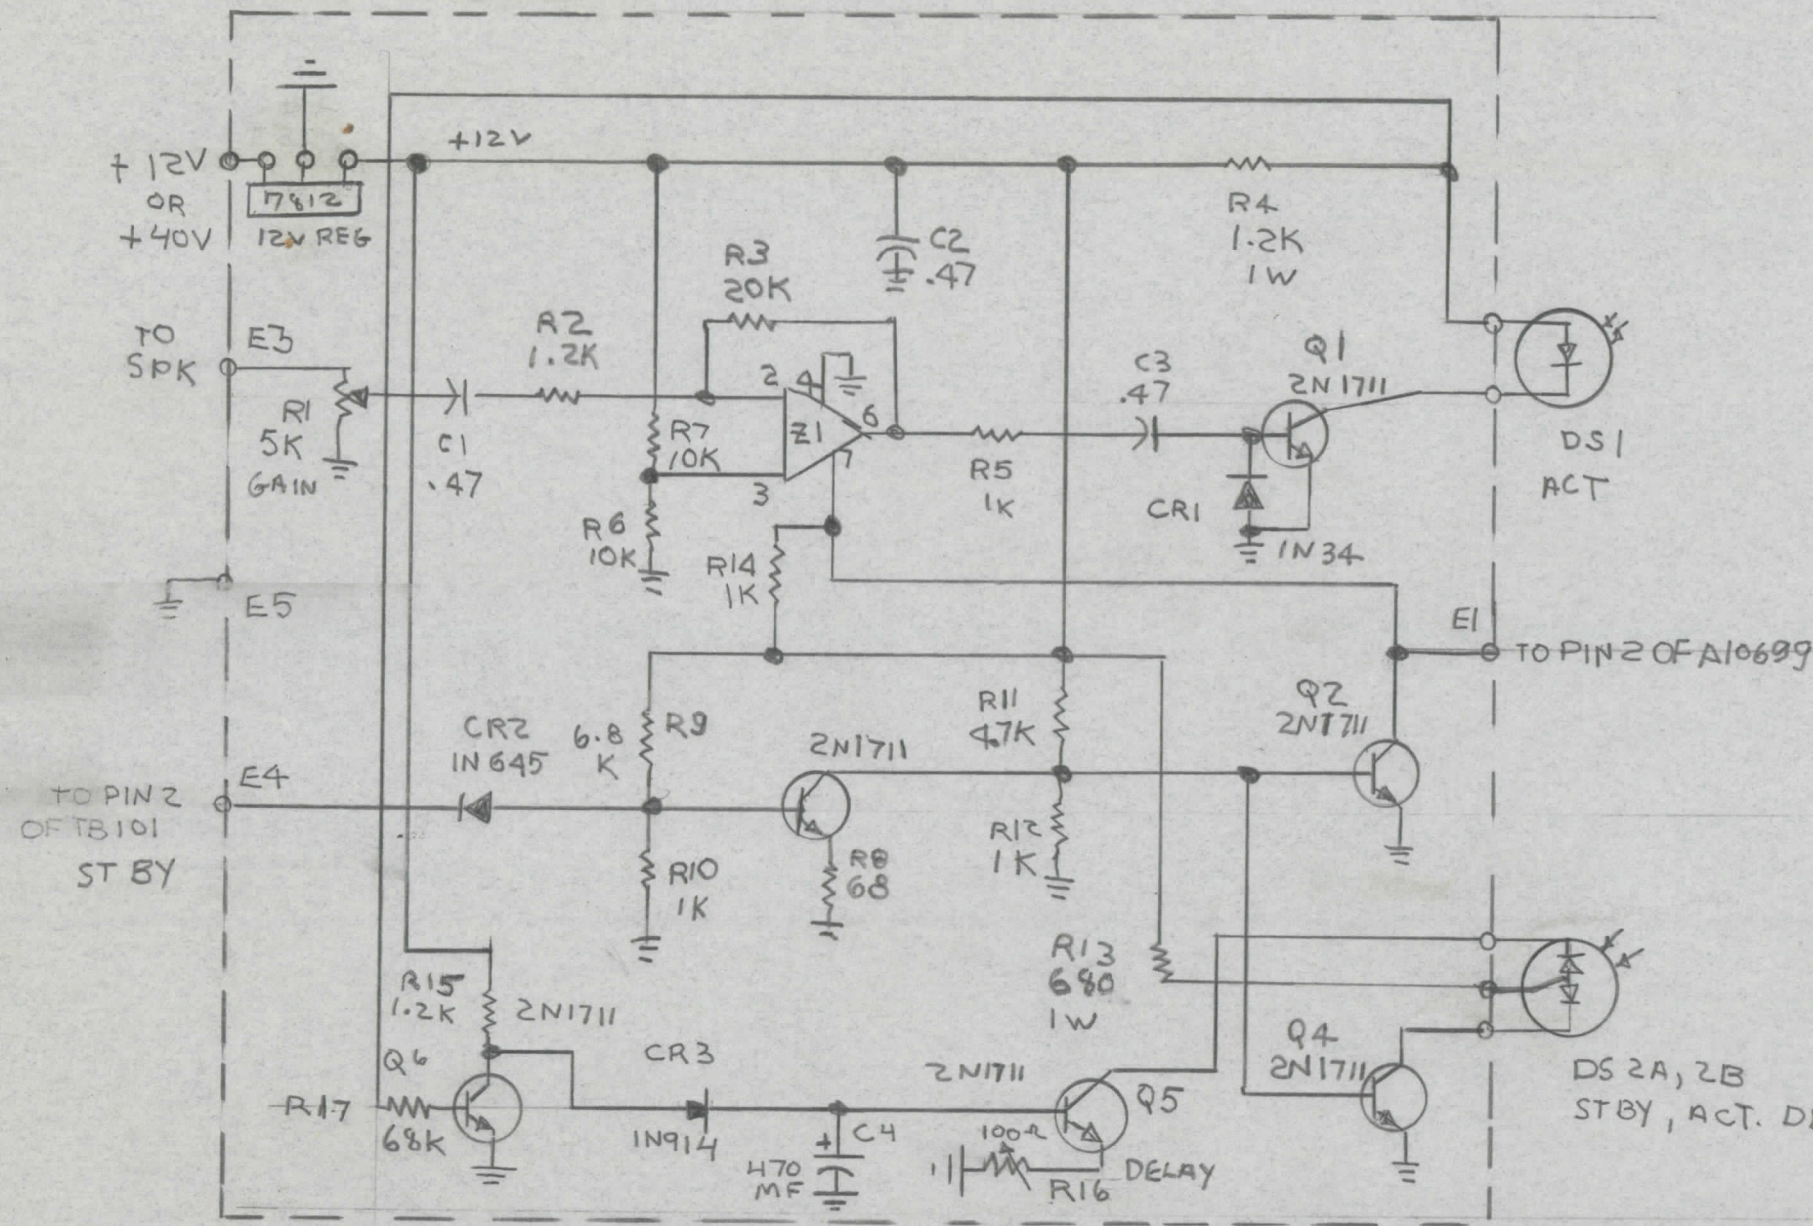 +12V
+ 12V
OR
+40V
7812
12V REG
R4
1.2K
1W
R3
20K
C2
.47
TO
SPK
E3
R2
1.2K
R1
5K
GAIN
C1
.47
2
4
Z1
6
7
3
R7
10K
R6
10K
R5
1K
C3
.47
Q1
2N1711
CR1
1N34
DS1
ACT
E5
R14
1K
E1
TO PIN 2 OF A10699
CR2
1N645
6.8
K
R9
2N1711
R11
4.7K
Q2
2N1711
E4
TO PIN 2
OF TB101
ST BY
R10
1K
R8
68
R12
1K
R13
680
1W
R15
1.2K
2N1711
Q6
R17
68K
CR3
1N914
C4
+
470
MF
2N1711
Q5
100Ω
R16
DELAY
Q4
2N1711
DS 2A, 2B
ST BY, ACT.